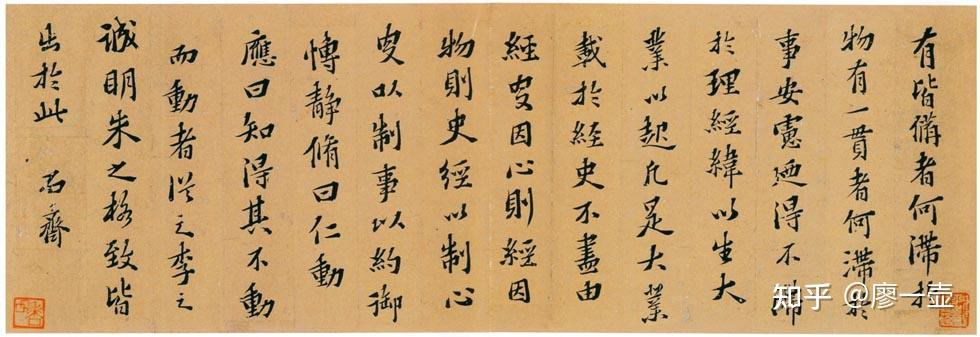 有皆備者何滯於
物有一貫者何滯於
事安慮廼得不滯
於理經緯以生大
業以起凡是大業
載於經史不盡由
經史因心則經因
物則史經以制心
史以制事以約御
博靜脩曰仁動
應曰知得其不動
而動者從之李之
誠明朱之格致皆
出於此 尚齋
知乎 @廖一壶